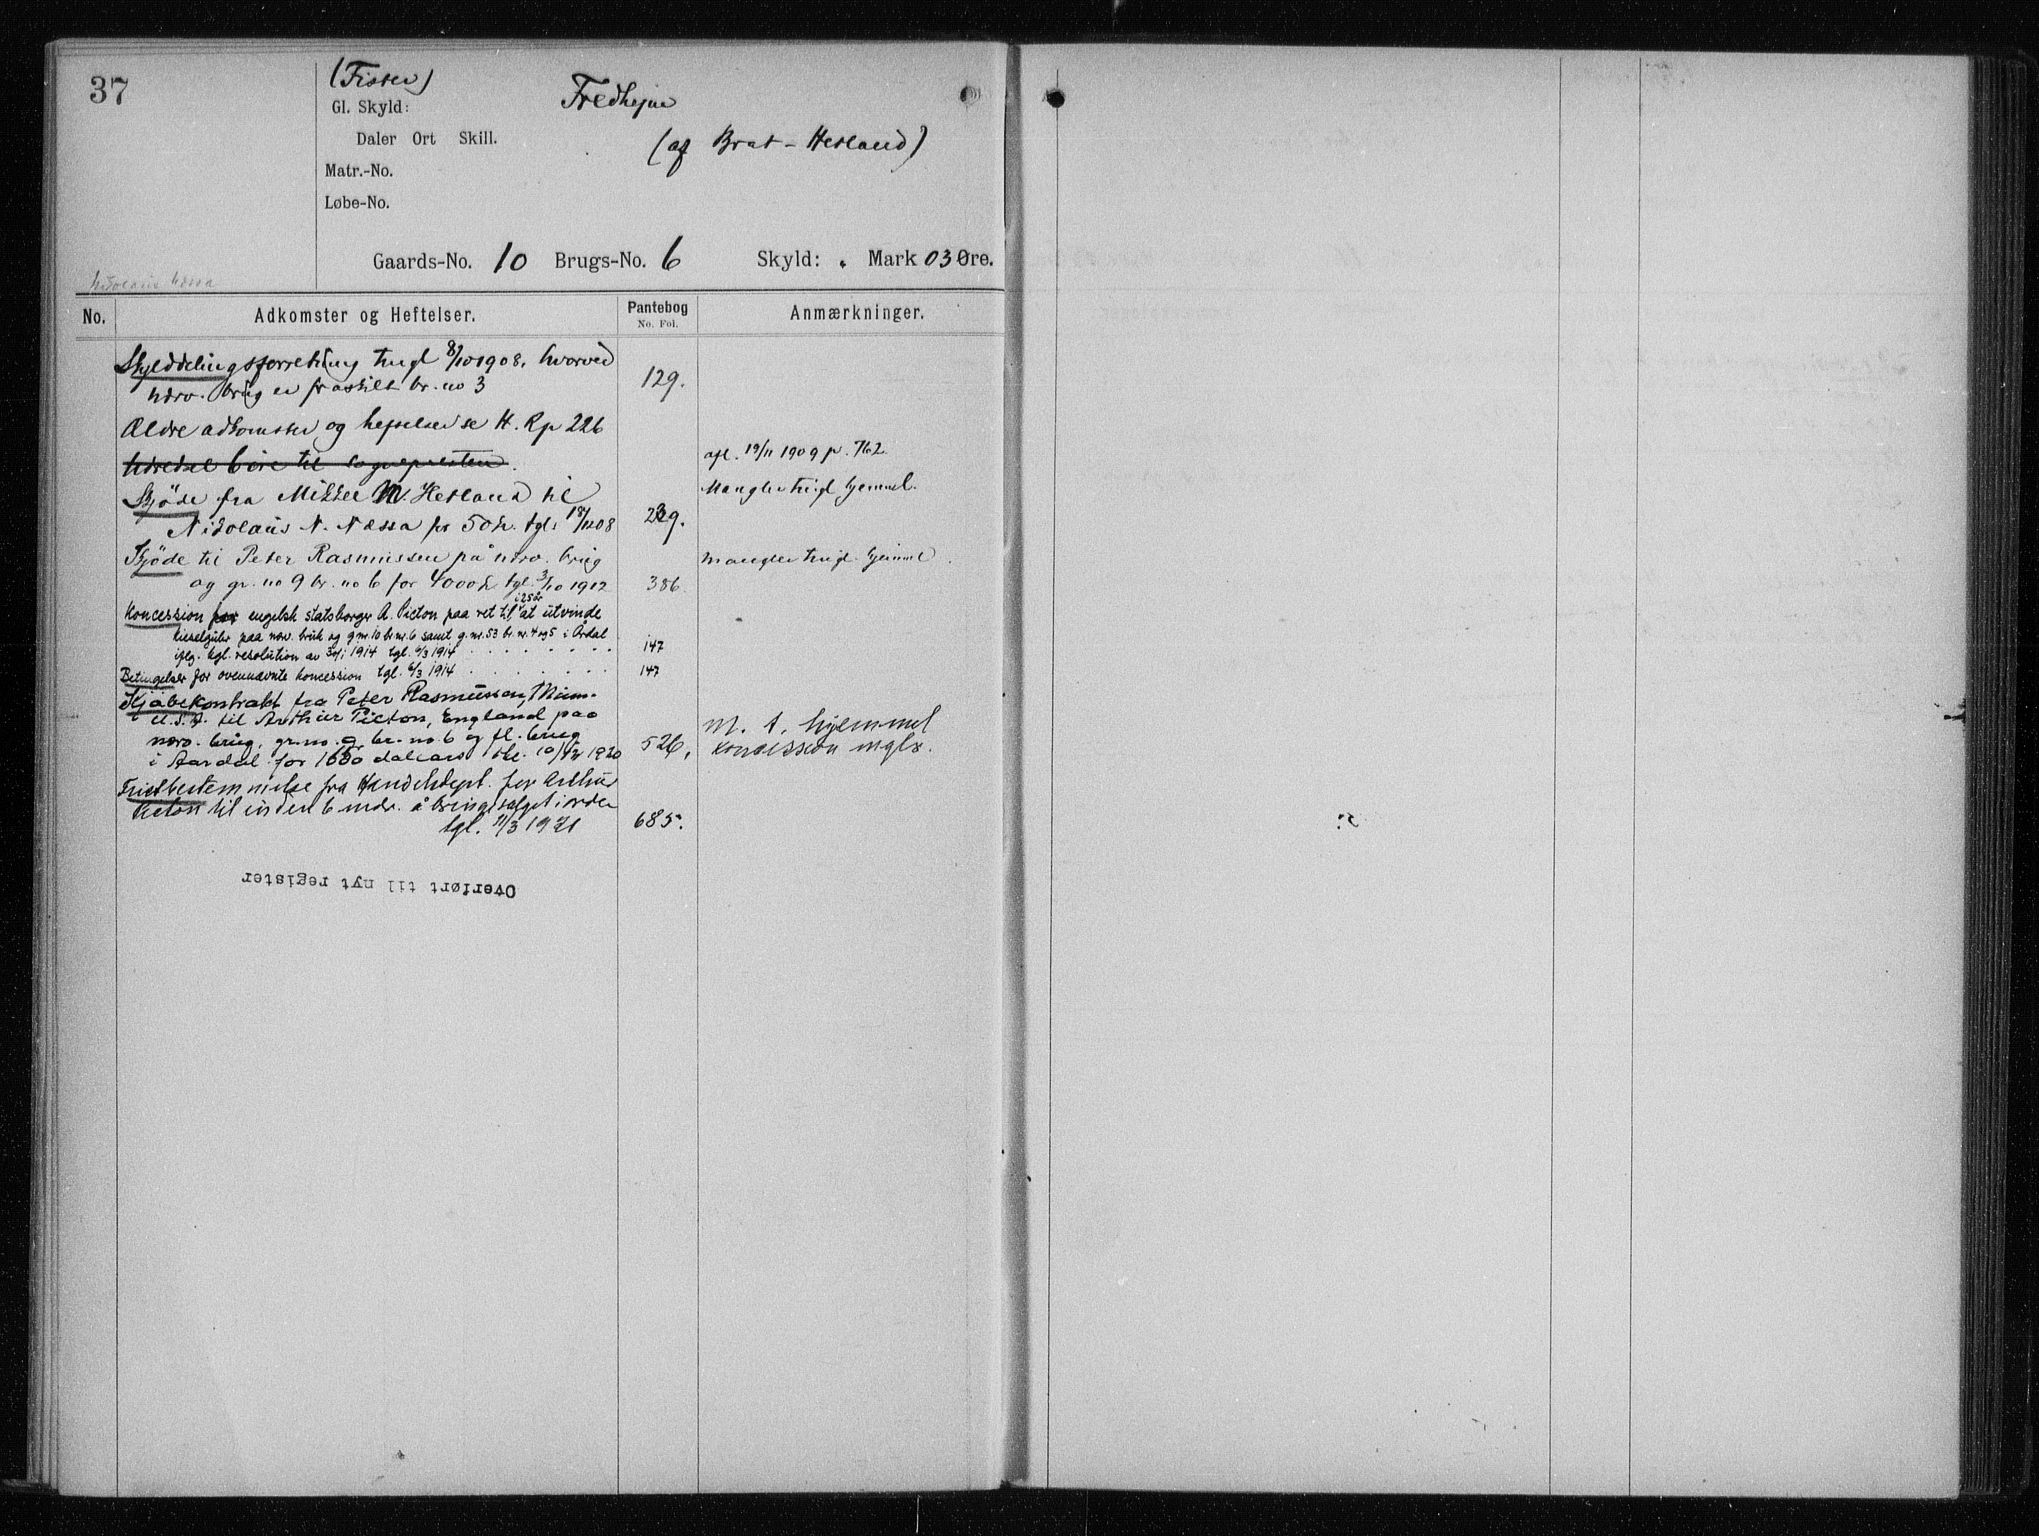 37
(Fister)
Gl. Skyld:
Fredheim
Daler Ort Skill.
(af Brat-Hetland)
Matr.-No.
Løbe-No.
Gaards-No. 10 Brugs-No. 6 Skyld: . Mark 03 Øre.
Nikolaus Næssa
No. Adkomster og Heftelser. Pantebog No. Fol. Anmærkninger.
Skylddelingsforretning tingl 8/10 1908, hvorved
nærv. brug er fraskilt br. no 3 129.
Ældre adkomster og heftelser se H. Rp 226
Aarlig 6 øre til sognepresten. afl. 19/11 1909 p. 762
Skjøde fra Mikkel M. Hetland til Mangler tingl. hjemmel.
Nikolaus N. Næssa for 50 kr. tgl. 18/12 08 239.
Skjøde til Peter Rasmussen på nærv. brug mangler tingl. hjemmel.
og gr. no 9 br. no 6 for 4000 kr tgl. 3/10 1912 386.
i 25 år
Koncession for engelsk statsborger A. Picton paa ret til at utvinde
kiselguhr paa nærv. bruk og g.nr. 10 br.nr. 6 samt g.nr. 53 br.nr. 4 og 5 i Årdal
iflg. kgl. resolution av 30/1 1914 tgl. 6/3 1914 . . . . . . . . 147
Betingelser for ovennævnte koncession tgl. 6/3 1914 . . . . . . . 147
Kjøbekontrakt fra Peter Rasmussen, Minn.
U.S.A. til Arthur Picton, England paa M. t. hjemmel
nærv. brug, gr.no. 9 br.no. 6 og fl. brug koncession mgls.
i Aardal for 1600 dollars tgl. 10/12 1920 526.
Fristbestemmelse fra Handelsdept. for Arthur
Picton til inden 6 mdr. å bringe salget i orden
tgl. 11/3 1921 685.
Overført til nyt register